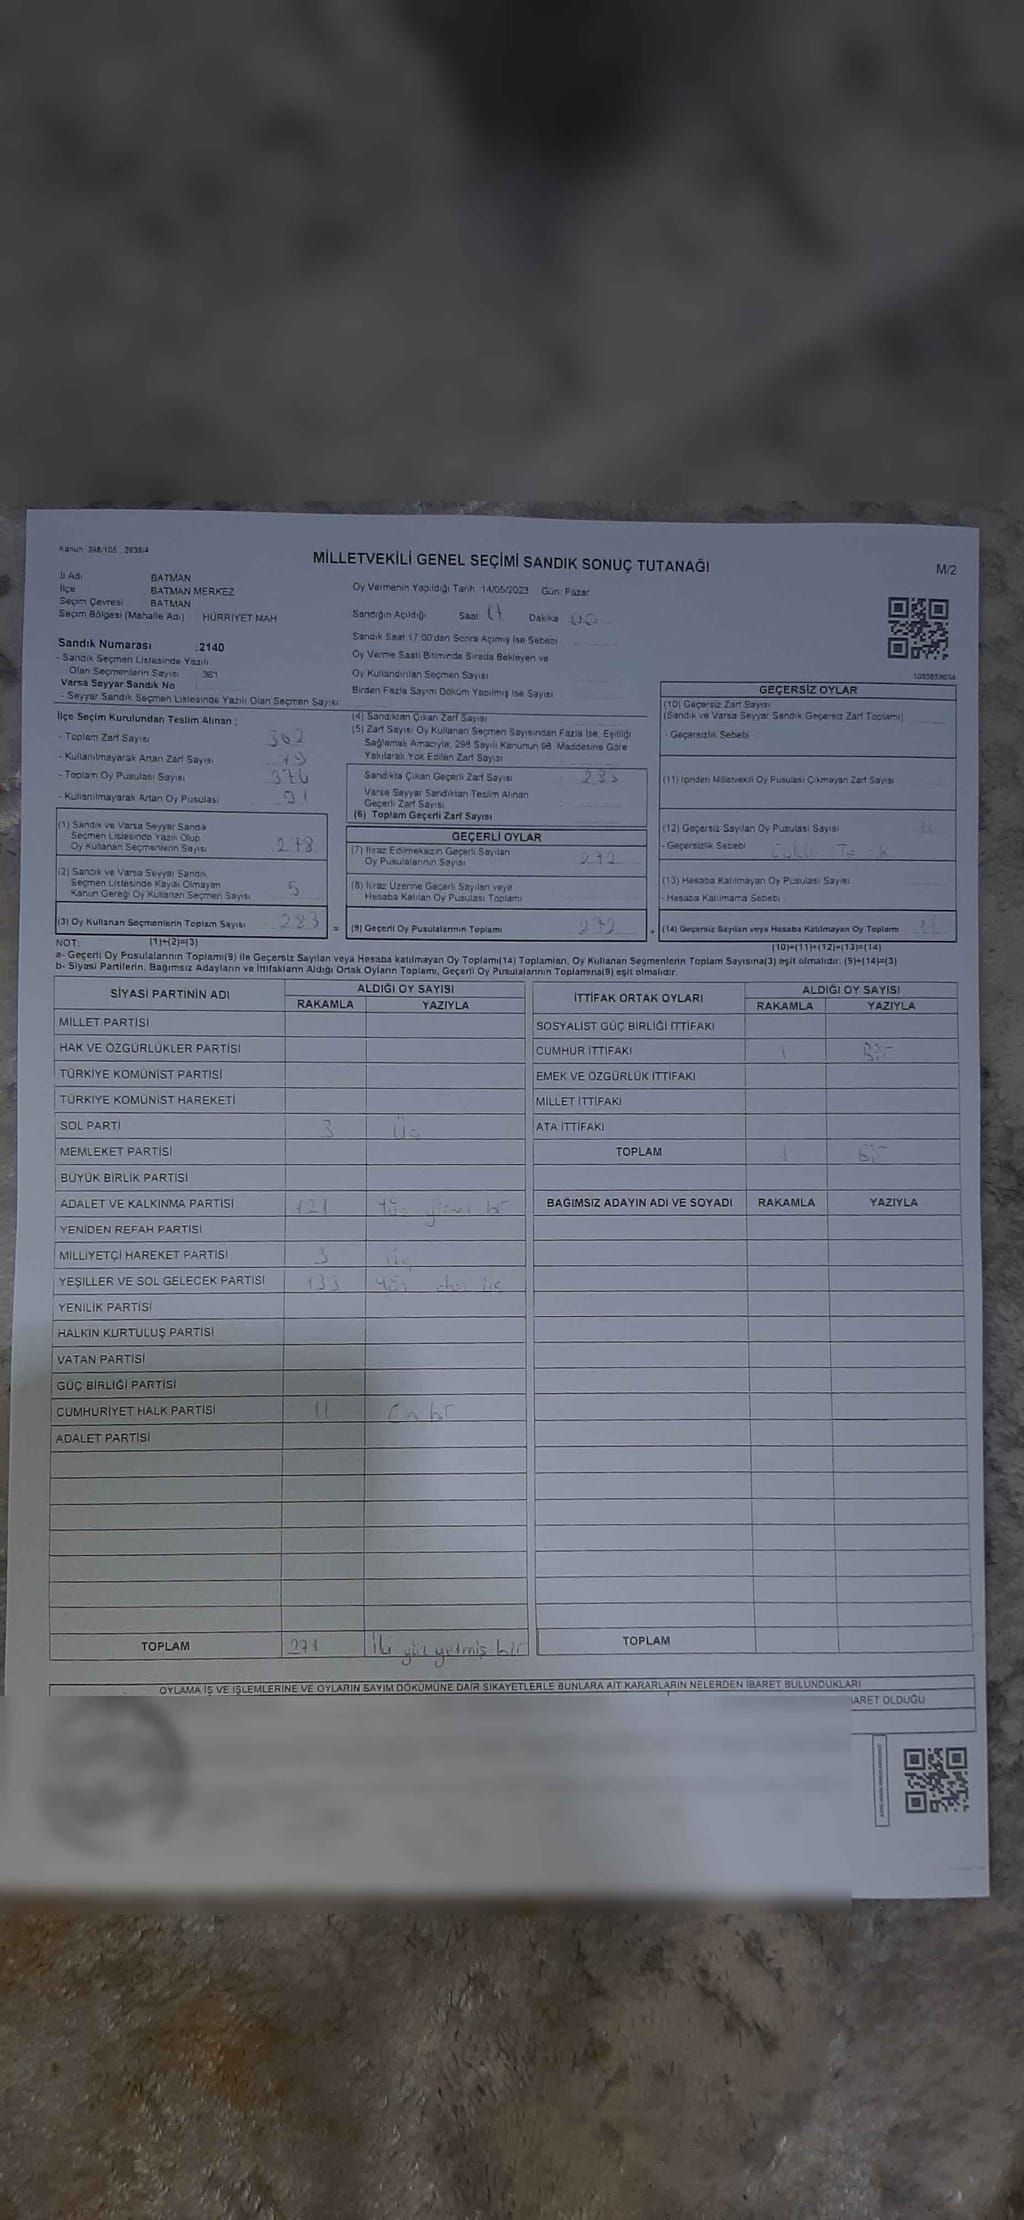 Kanun 298/105 , 2839/4
MİLLETVEKİLİ GENEL SEÇİMİ SANDIK SONUÇ TUTANAĞI
M/2
İl Adı BATMAN
İlçe BATMAN MERKEZ
Seçim Çevresi BATMAN
Seçim Bölgesi (Mahalle Adı) HÜRRİYET MAH
Oy Vermenin Yapıldığı Tarih :14/05/2023 Gün: Pazar
Sandığın Açıldığı Saat 17 Dakika 00
Sandık Saat 17:00'dan Sonra Açımış İse Sebebi
Oy Verme Saati Bitiminde Sırada Bekleyen ve
Oy Kullandırılan Seçmen Sayısı
Birden Fazla Sayım Döküm Yapılmış İse Sayısı
Sandık Numarası :2140
- Sandık Seçmen Listesinde Yazılı
Olan Seçmenlerin Sayısı 361
Varsa Seyyar Sandık No
- Seyyar Sandık Seçmen Listesinde Yazılı Olan Seçmen Sayısı
İlçe Seçim Kurulundan Teslim Alınan :
- Toplam Zarf Sayısı 362
- Kullanılmayarak Artan Zarf Sayısı 79
- Toplam Oy Pusulası Sayısı 374
- Kullanılmayarak Artan Oy Pusulası 91
(1) Sandık ve Varsa Seyyar Sandık
Seçmen Listesinde Yazılı Olup
Oy Kullanan Seçmenlerin Sayısı 278
(2) Sandık ve Varsa Seyyar Sandık
Seçmen Listesinde Kayıtlı Olmayan
Kanun Gereği Oy Kullanan Seçmen Sayısı 5
(3) Oy Kullanan Seçmenlerin Toplam Sayısı 283
(4) Sandıktan Çıkan Zarf Sayısı
(5) Zarf Sayısı Oy Kullanan Seçmen Sayısından Fazla İse, Eşitliği
Sağlamak Amacıyla, 298 Sayılı Kanunun 98. Maddesine Göre
Yakılarak Yok Edilen Zarf Sayısı
Sandıkta Çıkan Geçerli Zarf Sayısı 283
Varsa Seyyar Sandıktan Teslim Alınan
Geçerli Zarf Sayısı
(6) Toplam Geçerli Zarf Sayısı
GEÇERLİ OYLAR
(7) İtiraz Edilmeksizin Geçerli Sayılan
Oy Pusulalarının Sayısı 272
(8) İtiraz Üzerine Geçerli Sayılan veya
Hesaba Katılan Oy Pusulası Toplamı
= (9) Geçerli Oy Pusulalarının Toplamı 272
1083859634
GEÇERSİZ OYLAR
(10) Geçersiz Zarf Sayısı
(Sandık ve Varsa Seyyar Sandık Geçersiz Zarf Toplamı)
- Geçersizlik Sebebi
(11) İçinden Milletvekili Oy Pusulası Çıkmayan Zarf Sayısı
(12) Geçersiz Sayılan Oy Pusulası Sayısı 11
- Geçersizlik Sebebi
(13) Hesaba Katılmayan Oy Pusulası Sayısı
- Hesaba Katılmama Sebebi :
+ (14) Geçersiz Sayılan veya Hesaba Katılmayan Oy Toplamı 11
NOT: (1)+(2)=(3)
(10)+(11)+(12)+(13)=(14)
a- Geçerli Oy Pusulalarının Toplamı(9) ile Geçersiz Sayılan veya Hesaba katılmayan Oy Toplamı(14) Toplamları, Oy Kullanan Seçmenlerin Toplam Sayısına(3) eşit olmalıdır. (9)+(14)=(3)
b- Siyasi Partilerin, Bağımsız Adayların ve İttifakların Aldığı Ortak Oyların Toplamı, Geçerli Oy Pusulalarının Toplamına(9) eşit olmalıdır.
SİYASİ PARTİNİN ADI ALDIĞI OY SAYISI
RAKAMLA YAZIYLA
MİLLET PARTİSİ
HAK VE ÖZGÜRLÜKLER PARTİSİ
TÜRKİYE KOMÜNİST PARTİSİ
TÜRKİYE KOMÜNİST HAREKETİ
SOL PARTİ 3 Üç
MEMLEKET PARTİSİ
BÜYÜK BİRLİK PARTİSİ
ADALET VE KALKINMA PARTİSİ 121 Yüz yirmi bir
YENİDEN REFAH PARTİSİ
MİLLİYETÇİ HAREKET PARTİSİ 3 Üç
YEŞİLLER VE SOL GELECEK PARTİSİ 133 Yüz otuz üç
YENİLİK PARTİSİ
HALKIN KURTULUŞ PARTİSİ
VATAN PARTİSİ
GÜÇ BİRLİĞİ PARTİSİ
CUMHURİYET HALK PARTİSİ 11 On bir
ADALET PARTİSİ
TOPLAM 271 İki yüz yetmiş bir
İTTİFAK ORTAK OYLARI ALDIĞI OY SAYISI
RAKAMLA YAZIYLA
SOSYALİST GÜÇ BİRLİĞİ İTTİFAKI
CUMHUR İTTİFAKI 1 Bir
EMEK VE ÖZGÜRLÜK İTTİFAKI
MİLLET İTTİFAKI
ATA İTTİFAKI
TOPLAM 1 Bir
BAĞIMSIZ ADAYIN ADI VE SOYADI RAKAMLA YAZIYLA
TOPLAM
OYLAMA İŞ VE İŞLEMLERİNE VE OYLARIN SAYIM DÖKÜMÜNE DAİR ŞİKAYETLERLE BUNLARA AİT KARARLARIN NELERDEN İBARET BULUNDUKLARI
BARET OLDUĞU